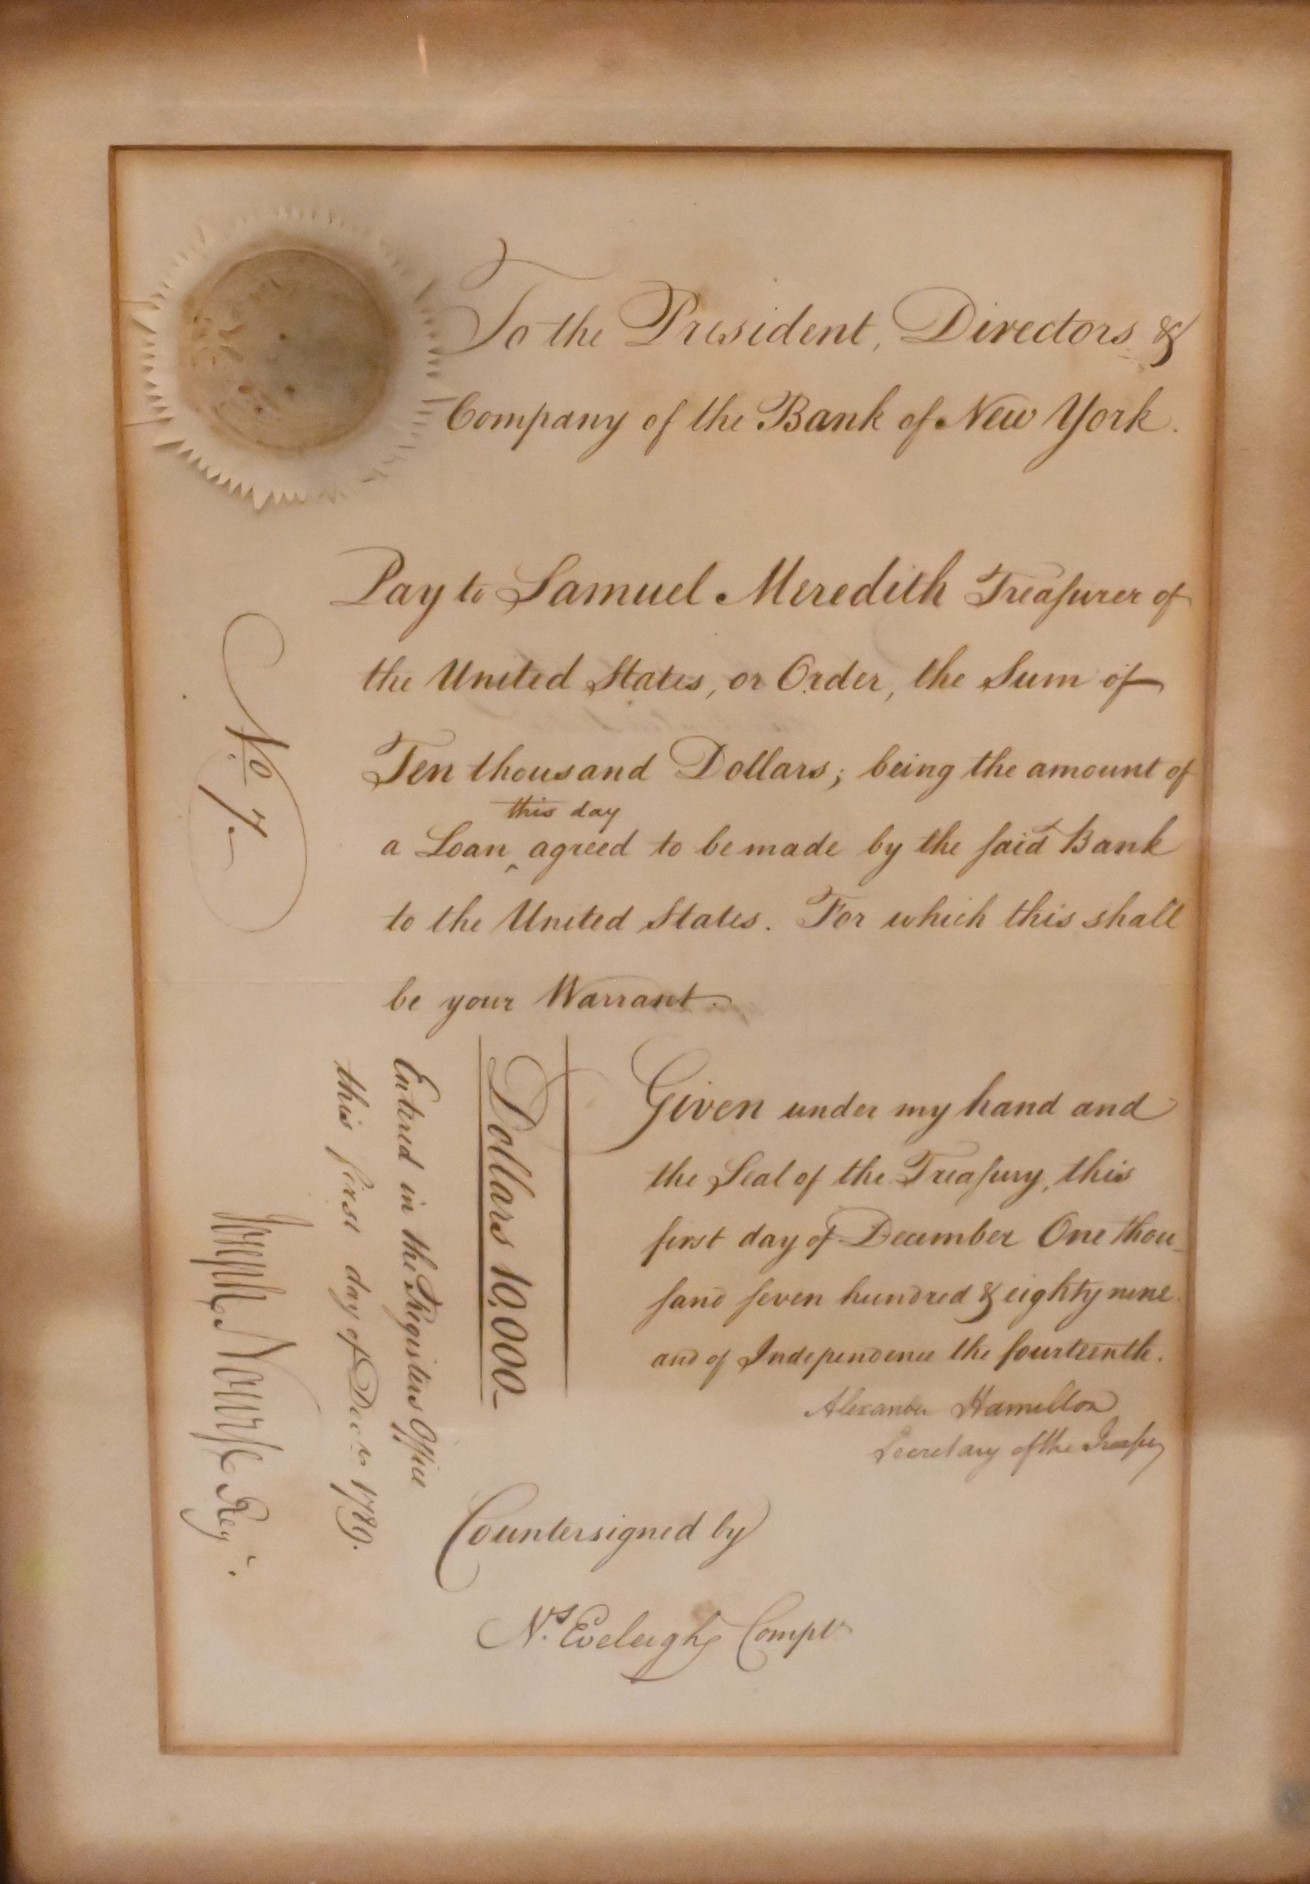 To the President, Directors &
Company of the Bank of New York.
Pay to Samuel Meredith Treaſurer of
the United States, or Order, the Sum of
Ten thousand Dollars; being the amount of
this day
a Loan ‸ agreed to be made by the ſaid Bank
to the United States. For which this shall
be your Warrant.
No. 7.
Given under my hand and
the Seal of the Treaſury, this
first day of December One thou-
ſand ſeven hundred & eighty nine.
and of Independence the fourteenth.
Alexander Hamilton
Secretary of the Treaſuy
Dollars 10,000
Entered in the Registers Office
this first day of Decr 1789.
Joseph Nourſe Regr.
Countersigned by
Ns. Eveleigh Compr